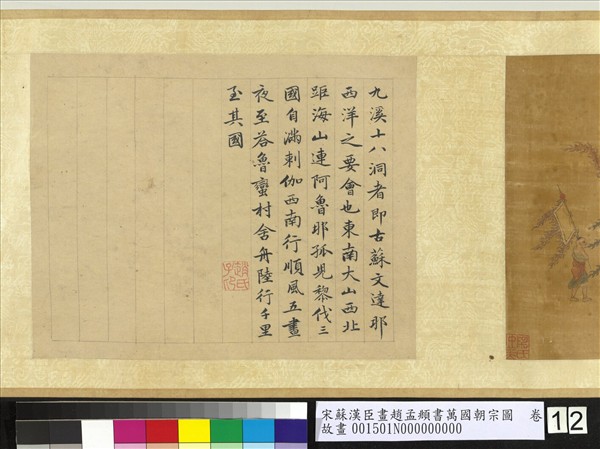 九溪十八洞者即古蘇文達耶
西洋之要會也東南大山西北
距海山連阿魯耶孤兒黎伐三
國自滿剌伽西南行順風五晝
夜至荅魯蠻村舍舟陸行千里
至其國
趙氏子昂
宋蘇漢臣畫趙孟頫書萬國朝宗圖 卷
故畫 001501N000000000
12